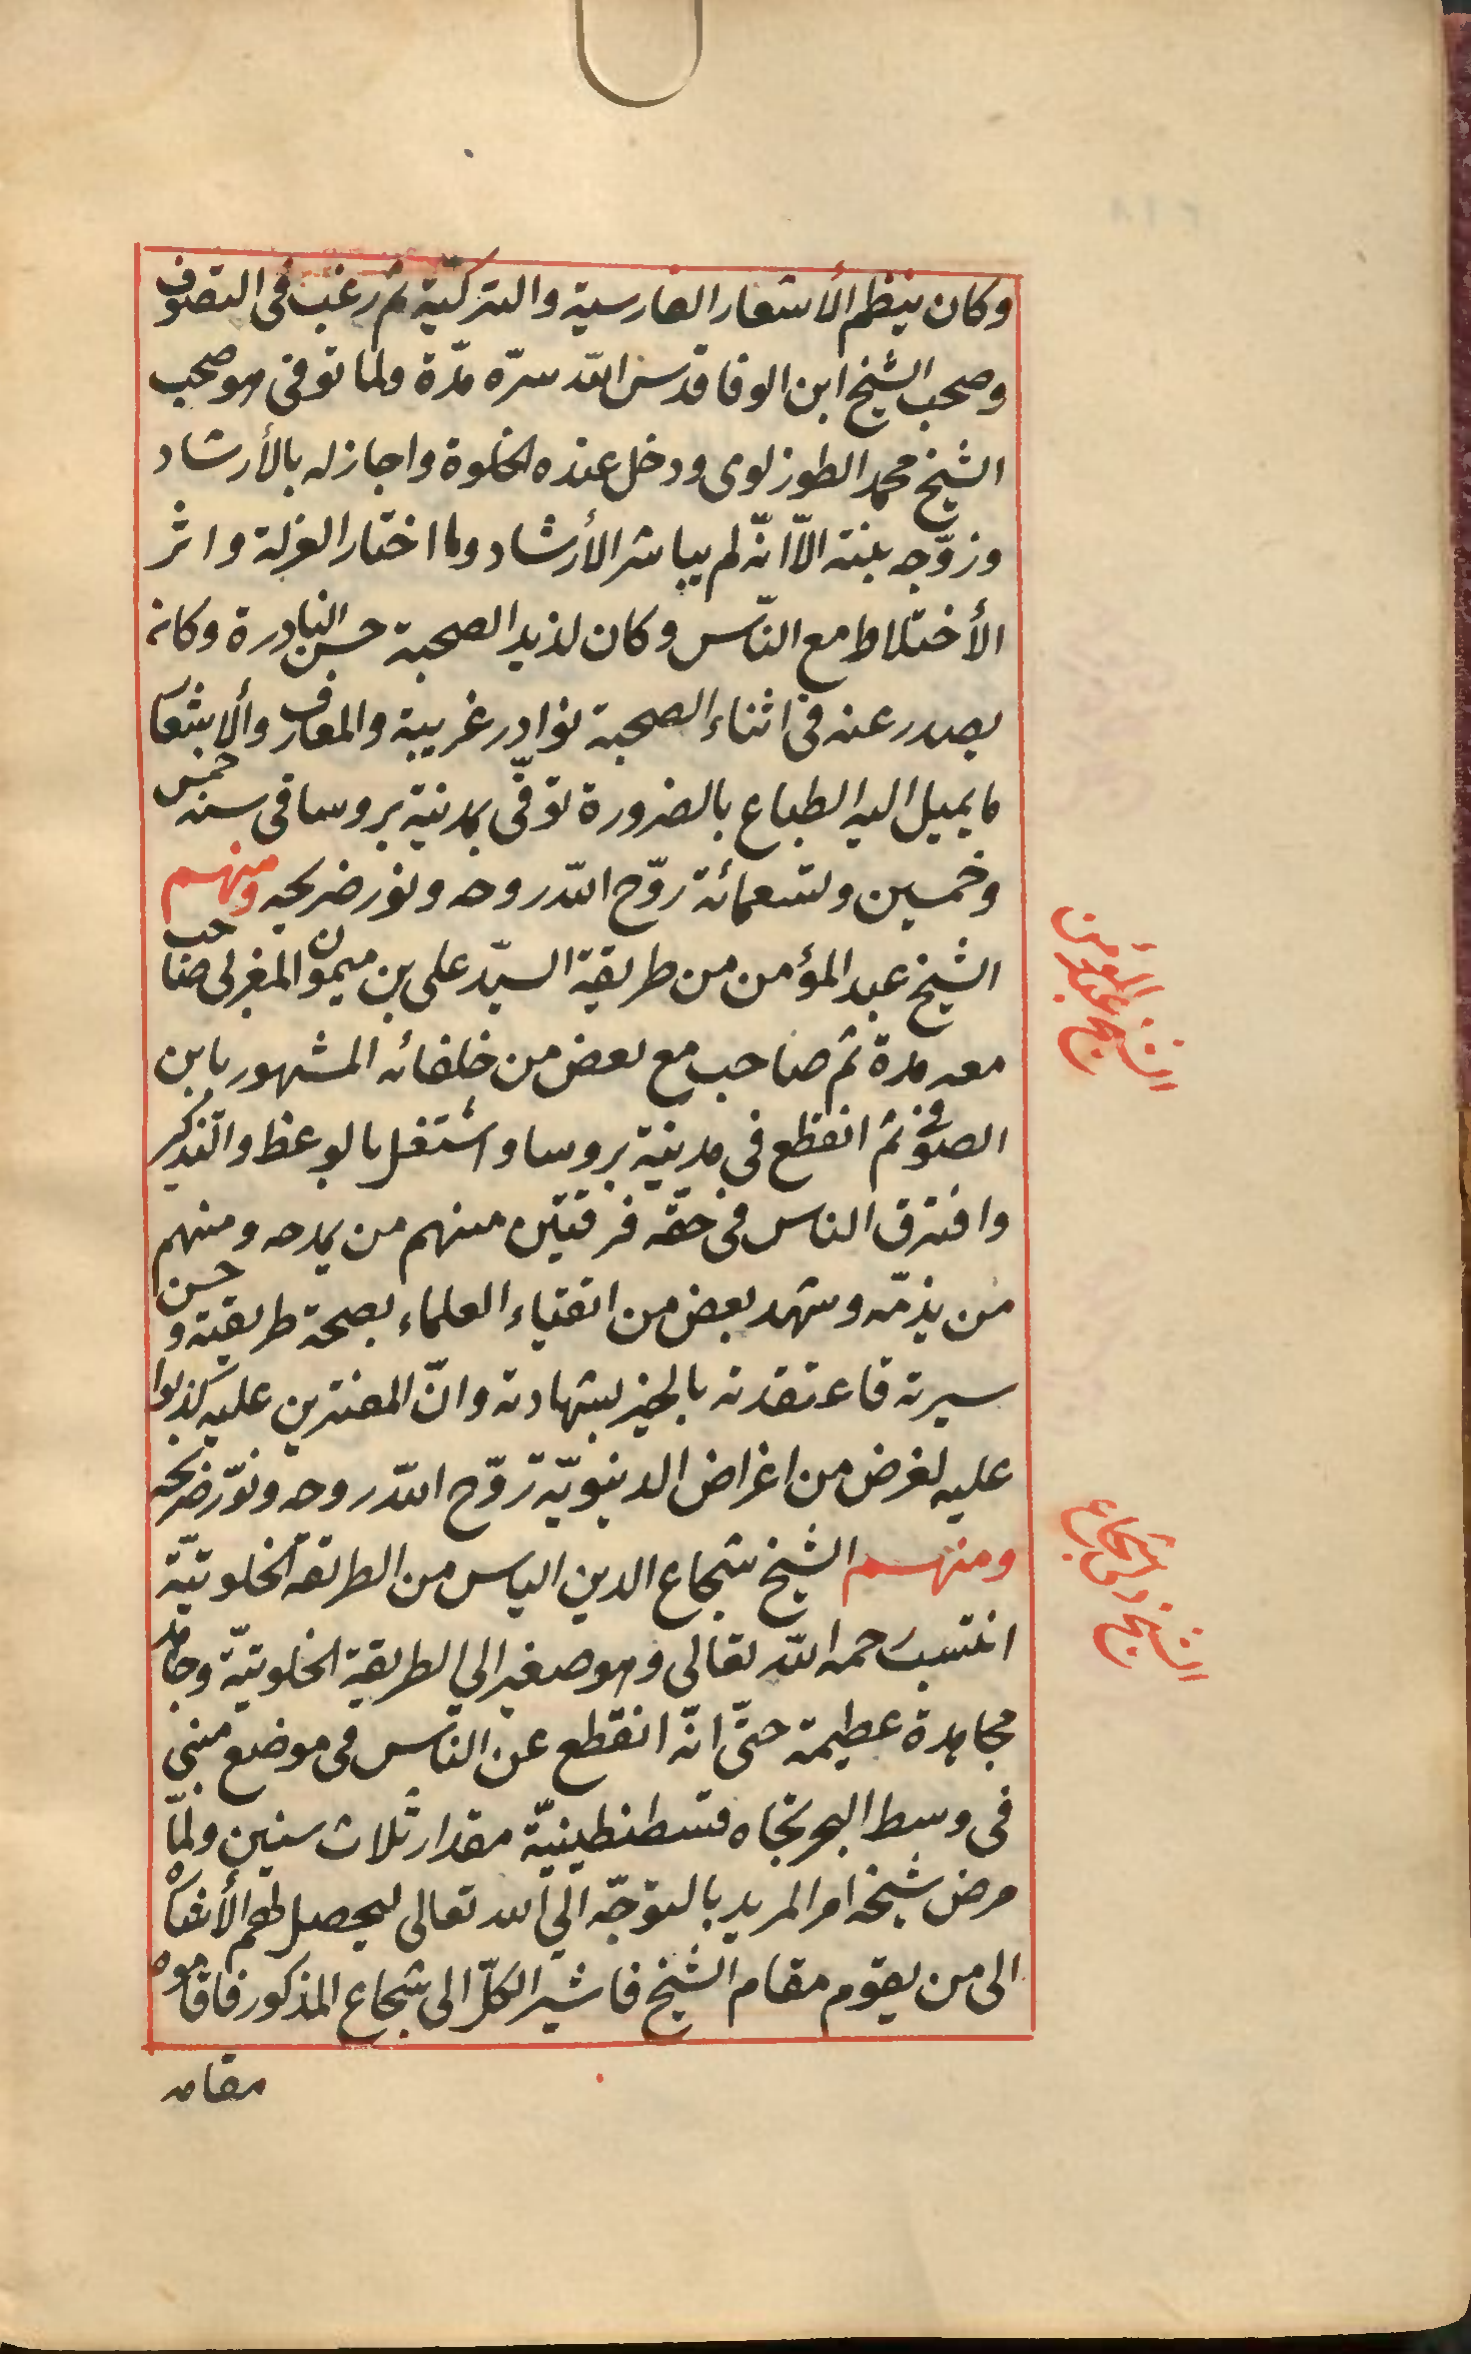 وكان ينظم الأشعار الفارسية والتركيّة ثم رغب فى التصوف
وصحب الشيخ ابن الوفا قدس اللّه سرّه مدّة ولما توفى هو صحب
الشيخ محمد الطوزلوى ودخل عنده الخلوة واجاز له بالأرشاد
وزوّجه بنته الاّ انّه لم يباشر الأرشاد وما اختار العزلة واثر
الأختلاط مع النّاس وكان لذيد الصحبة حسن النادرة وكانه
يصدر عنه فى اثناء الصحبة نوادر غريبة والمعارف والاشعا
ما يميل اليه الطباع بالضرورة توفّى بمدينة بروسا فى سنه خمس
وخمسين وتسعمائة روّح اللّه روحه ونور ضريحه ومنهم
الشيخ عبد المؤمن من طريقة السيّد على بن ميمون المغربى صاحب
معه مدة ثم صاحب مع بعض من خلفائه المشهور بابن
الصوفى ثم انقطع فى مدينة بروسا واشتغل بالوعظ والتذكير
وافترق الناس فى حقّه فرقتين منهم من يمدحه ومنهم
من يذمّه وشهد بعض من اتقياء العلماء بصحة طريقته وحسن
سيرته فاعتقدته بالخير بشهادته وانّ المفترين عليه كذبوا
عليه لغرض من اغراض الدنيويّة روّح اللّه روحه ونوّر ضريحه
ومنهم الشيخ شجاع الدين الياس من الطريقة الخلوتيّة
انتسب رحمه اللّه تعالى وهو صغير الى الطريقة الخلوتيّة وجاهد
مجاهدة عظيمة حتّى انّه انقطع عن النّاس فى موضع مبنى
فى وسط البحر تجاه قسطنطينيّة مقدار ثلاث سنين ولمّا
مرض شيخه امر المريد بالتوجّه الى اللّه تعالى ليحصل لهم الأشاره
الى من يقوم مقام الشيخ فاشير الكلّ الى شجاع المذكور فاقاموه
مقامه
الشيخ عبد المؤمن
الشيخ الشجاع